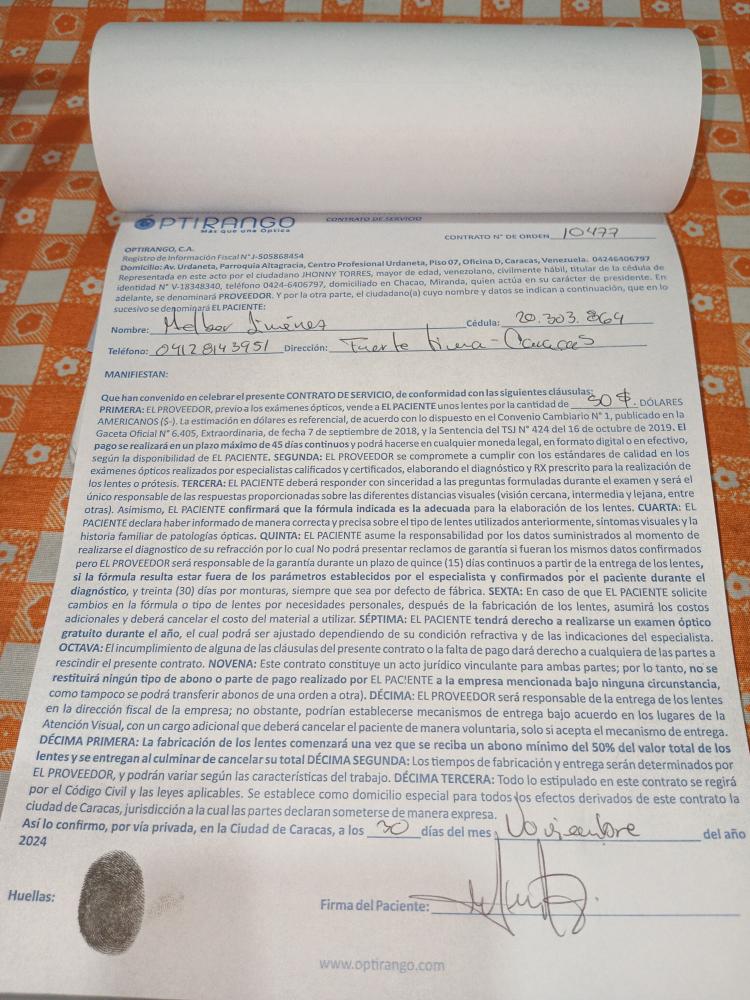 ÓPTIRANGO
Más que una Óptica
CONTRATO DE SERVICIO
CONTRATO N° DE ORDEN 10477
OPTIRANGO, C.A.
Registro de Información Fiscal N° J-505868454
Domicilio: Av. Urdaneta, Parroquia Altagracia, Centro Profesional Urdaneta, Piso 07, Oficina D, Caracas, Venezuela. 04246406797
Representada en este acto por el ciudadano JHONNY TORRES, mayor de edad, venezolano, civilmente hábil, titular de la cédula de
identidad N° V-18348340, teléfono 0424-6406797, domiciliado en Chacao, Miranda, quien actúa en su carácter de presidente. En
adelante, se denominará PROVEEDOR. Y por la otra parte, el ciudadano(a) cuyo nombre y datos se indican a continuación, que en lo
sucesivo se denominará EL PACIENTE:
Nombre: Jiménez Cédula: 20.303.864
Teléfono: 04128143951 Dirección: Fuerte tiuna - Caracas
MANIFIESTAN:
Que han convenido en celebrar el presente CONTRATO DE SERVICIO, de conformidad con las siguientes cláusulas:
PRIMERA: EL PROVEEDOR, previo a los exámenes ópticos, vende a EL PACIENTE unos lentes por la cantidad de 50 $. DÓLARES
AMERICANOS ($-). La estimación en dólares es referencial, de acuerdo con lo dispuesto en el Convenio Cambiario N° 1, publicado en la
Gaceta Oficial N° 6.405, Extraordinaria, de fecha 7 de septiembre de 2018, y la Sentencia del TSJ N° 424 del 16 de octubre de 2019. El
pago se realizará en un plazo máximo de 45 días continuos y podrá hacerse en cualquier moneda legal, en formato digital o en efectivo,
según la disponibilidad de EL PACIENTE. SEGUNDA: EL PROVEEDOR se compromete a cumplir con los estándares de calidad en los
exámenes ópticos realizados por especialistas calificados y certificados, elaborando el diagnóstico y RX prescrito para la realización de
los lentes o prótesis. TERCERA: EL PACIENTE deberá responder con sinceridad a las preguntas formuladas durante el examen y será el
único responsable de las respuestas proporcionadas sobre las diferentes distancias visuales (visión cercana, intermedia y lejana, entre
otras). Asimismo, EL PACIENTE confirmará que la fórmula indicada es la adecuada para la elaboración de los lentes. CUARTA: EL
PACIENTE declara haber informado de manera correcta y precisa sobre el tipo de lentes utilizados anteriormente, síntomas visuales y la
historia familiar de patologías ópticas. QUINTA: EL PACIENTE asume la responsabilidad por los datos suministrados al momento de
realizarse el diagnostico de su refracción por lo cual No podrá presentar reclamos de garantía si fueran los mismos datos confirmados
pero EL PROVEEDOR será responsable de la garantía durante un plazo de quince (15) días continuos a partir de la entrega de los lentes,
si la fórmula resulta estar fuera de los parámetros establecidos por el especialista y confirmados por el paciente durante el
diagnóstico, y treinta (30) días por monturas, siempre que sea por defecto de fábrica. SEXTA: En caso de que EL PACIENTE solicite
cambios en la fórmula o tipo de lentes por necesidades personales, después de la fabricación de los lentes, asumirá los costos
adicionales y deberá cancelar el costo del material a utilizar. SÉPTIMA: EL PACIENTE tendrá derecho a realizarse un examen óptico
gratuito durante el año, el cual podrá ser ajustado dependiendo de su condición refractiva y de las indicaciones del especialista.
OCTAVA: El incumplimiento de alguna de las cláusulas del presente contrato o la falta de pago dará derecho a cualquiera de las partes a
rescindir el presente contrato. NOVENA: Este contrato constituye un acto jurídico vinculante para ambas partes; por lo tanto, no se
restituirá ningún tipo de abono o parte de pago realizado por EL PACIENTE a la empresa mencionada bajo ninguna circunstancia,
como tampoco se podrá transferir abonos de una orden a otra). DÉCIMA: EL PROVEEDOR será responsable de la entrega de los lentes
en la dirección fiscal de la empresa; no obstante, podrían establecerse mecanismos de entrega bajo acuerdo en los lugares de la
Atención Visual, con un cargo adicional que deberá cancelar el paciente de manera voluntaria, solo si acepta el mecanismo de entrega.
DÉCIMA PRIMERA: La fabricación de los lentes comenzará una vez que se reciba un abono mínimo del 50% del valor total de los
lentes y se entregan al culminar de cancelar su total DÉCIMA SEGUNDA: Los tiempos de fabricación y entrega serán determinados por
EL PROVEEDOR, y podrán variar según las características del trabajo. DÉCIMA TERCERA: Todo lo estipulado en este contrato se regirá
por el Código Civil y las leyes aplicables. Se establece como domicilio especial para todos los efectos derivados de este contrato la
ciudad de Caracas, jurisdicción a la cual las partes declaran someterse de manera expresa.
Así lo confirmo, por vía privada, en la Ciudad de Caracas, a los 30 días del mes Noviembre del año
2024
Huellas:
Firma del Paciente:
www.optirango.com